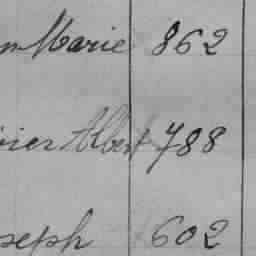 n Marie 862
vier Albert 788
seph 602